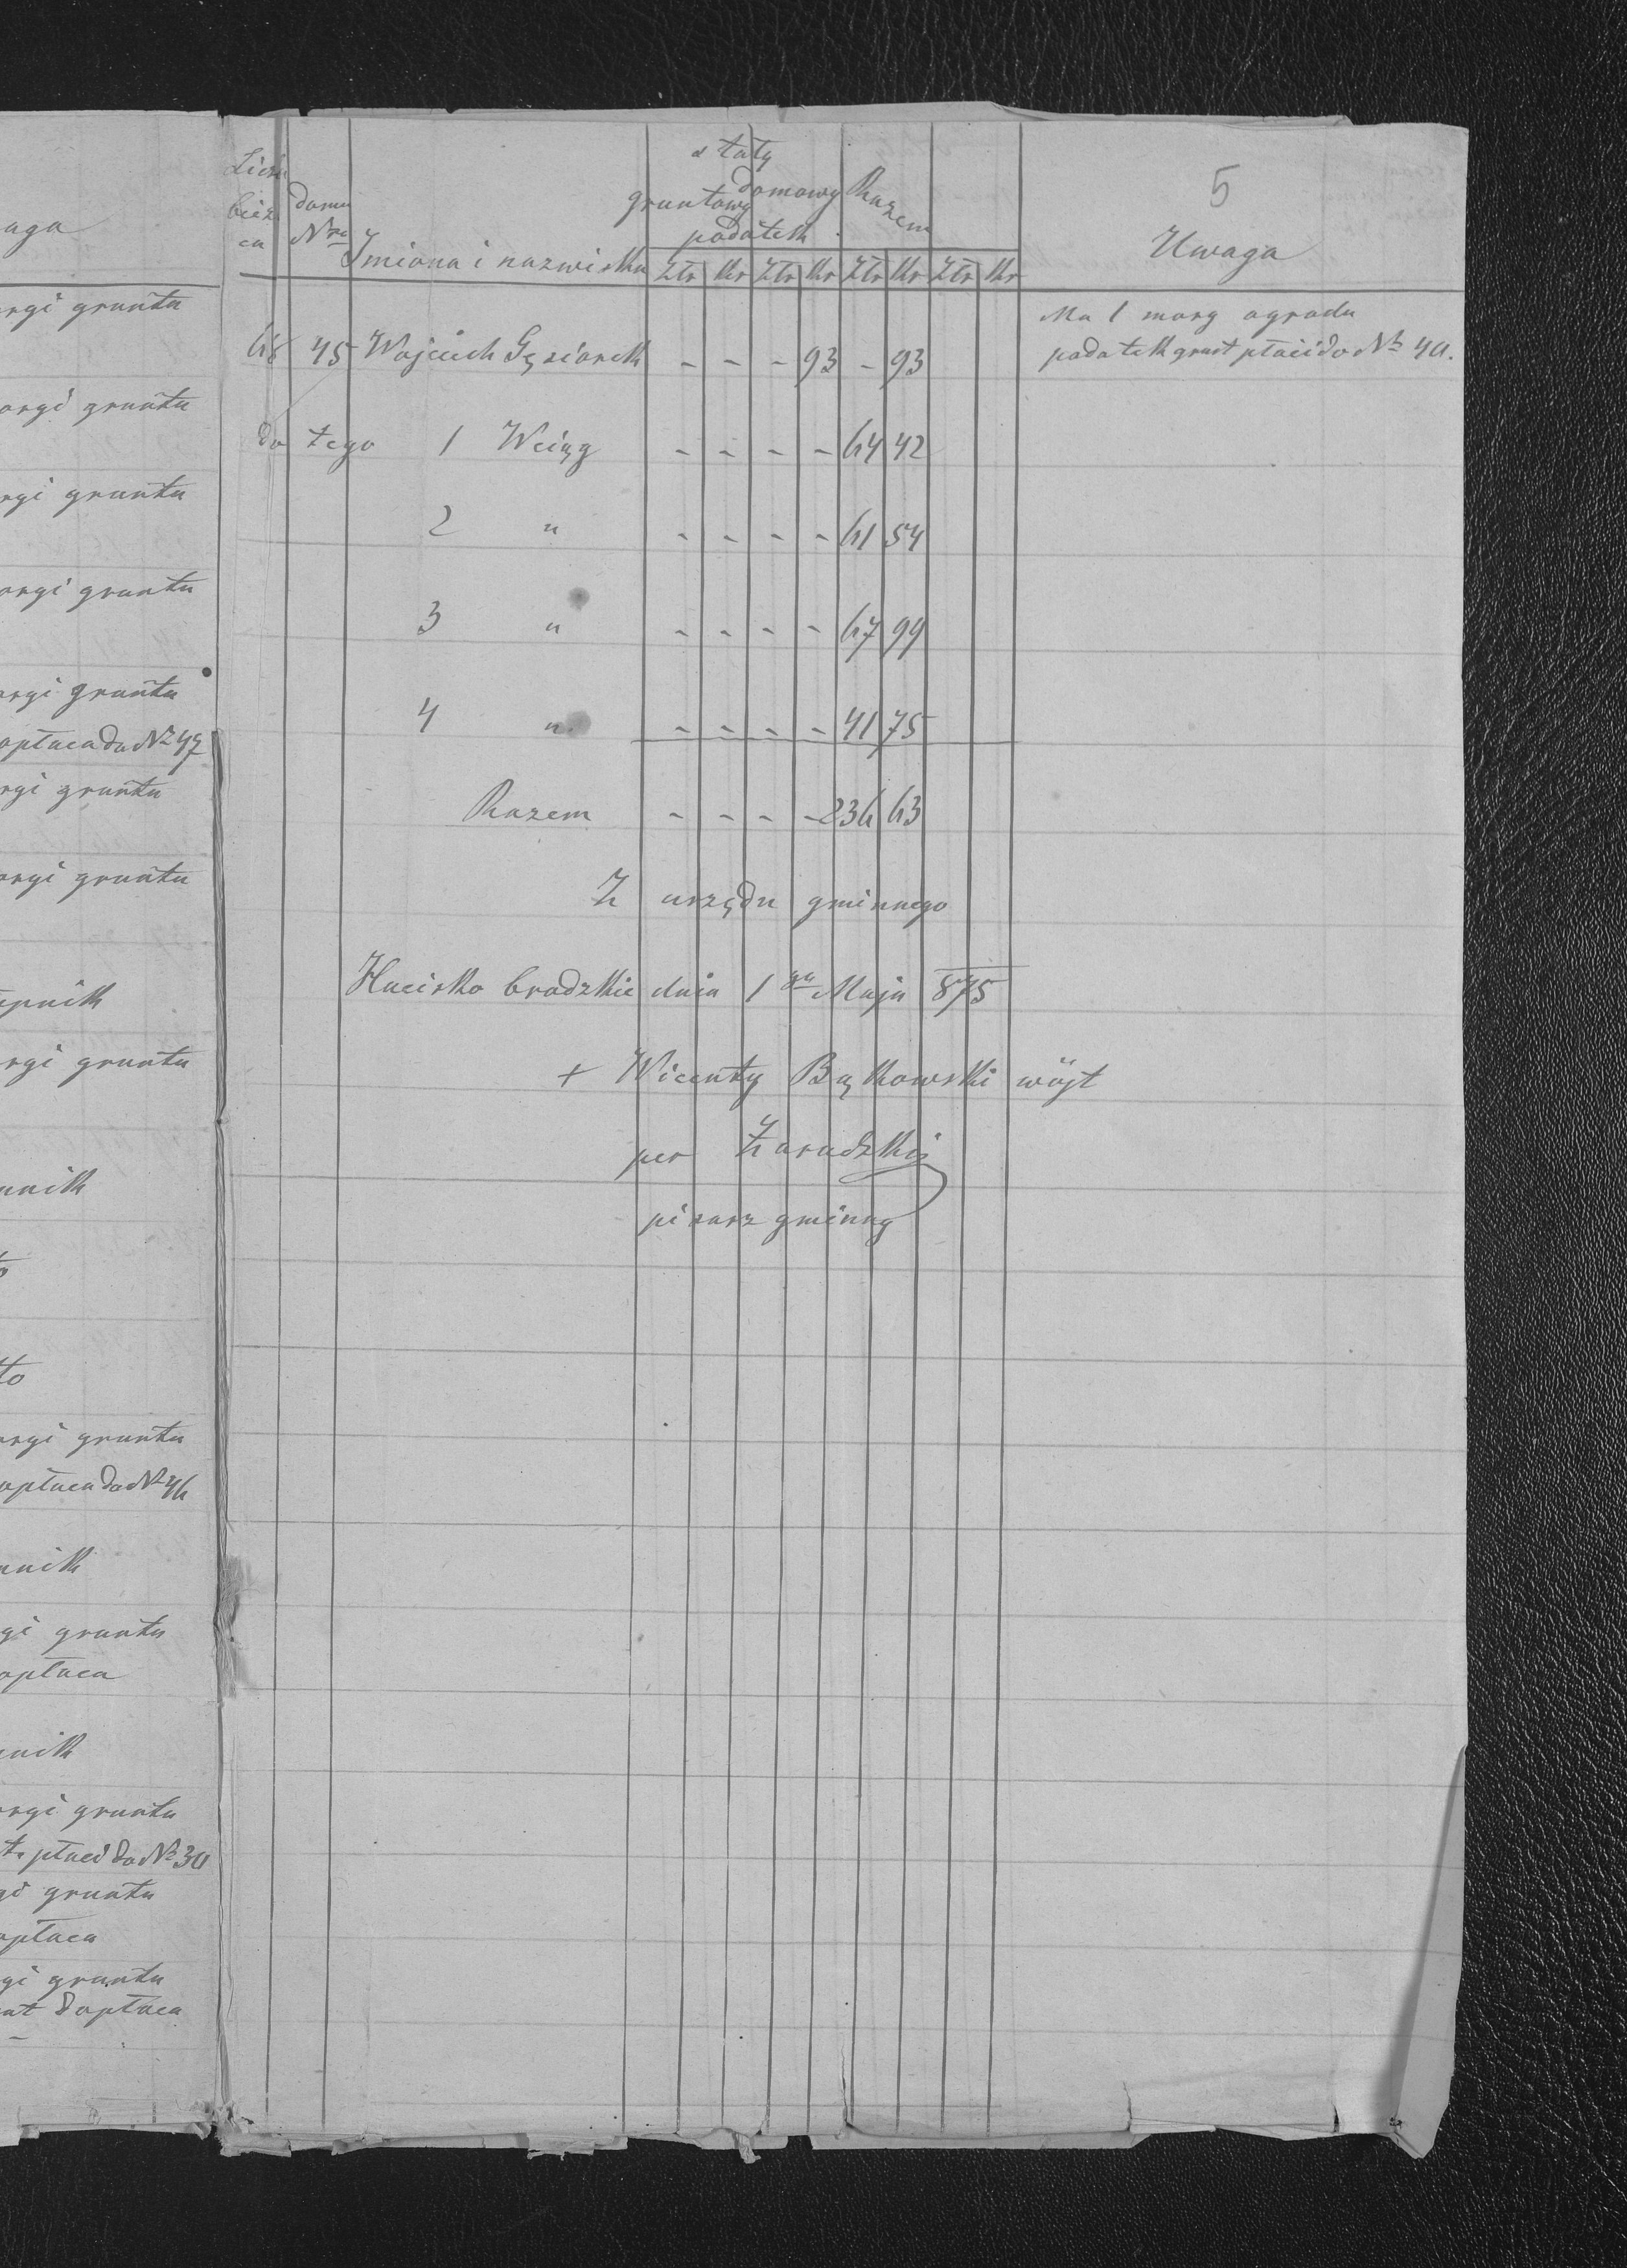 aga
orgi gruntu
orgi gruntu
rgi gruntu
orgi gruntu
orgi gruntu
opłaca do Nr 47
rgi gruntu
orgi gruntu
epnik
rgi gruntu
nnik
to
orgi gruntu
opłaca do Nr 46
nnik
gi gruntu
opłaca
nnik
orgi gruntu
tu płaci do Nr 30
gi gruntu
opłaca
gi gruntu
nt dopłaca
5
Liczb bieżą ca
domu Nro
Imiona i nazwiska
stały
gruntowy domowy
podatek
Razem
Ztr kr Ztr kr Ztr kr Ztr kr
Uwaga
68 45 Wojciech Gęsiorek - - - 93 - 93 Ma 1 morg ogrodu
podatek grunt płaci do Nr 40.
do tego 1 Weiąg - - - - 64 42
2 " - - - - 61 54
3 " - - - - 67 99
4 " - - - - 41 75
Razem - - - - 236 63
Z urzędu gminnego
Hucisko brodzkie dnia 1go Maja 875
+ Wicenty Bąkowski wójt
per Zaradzki
pisarz gminny